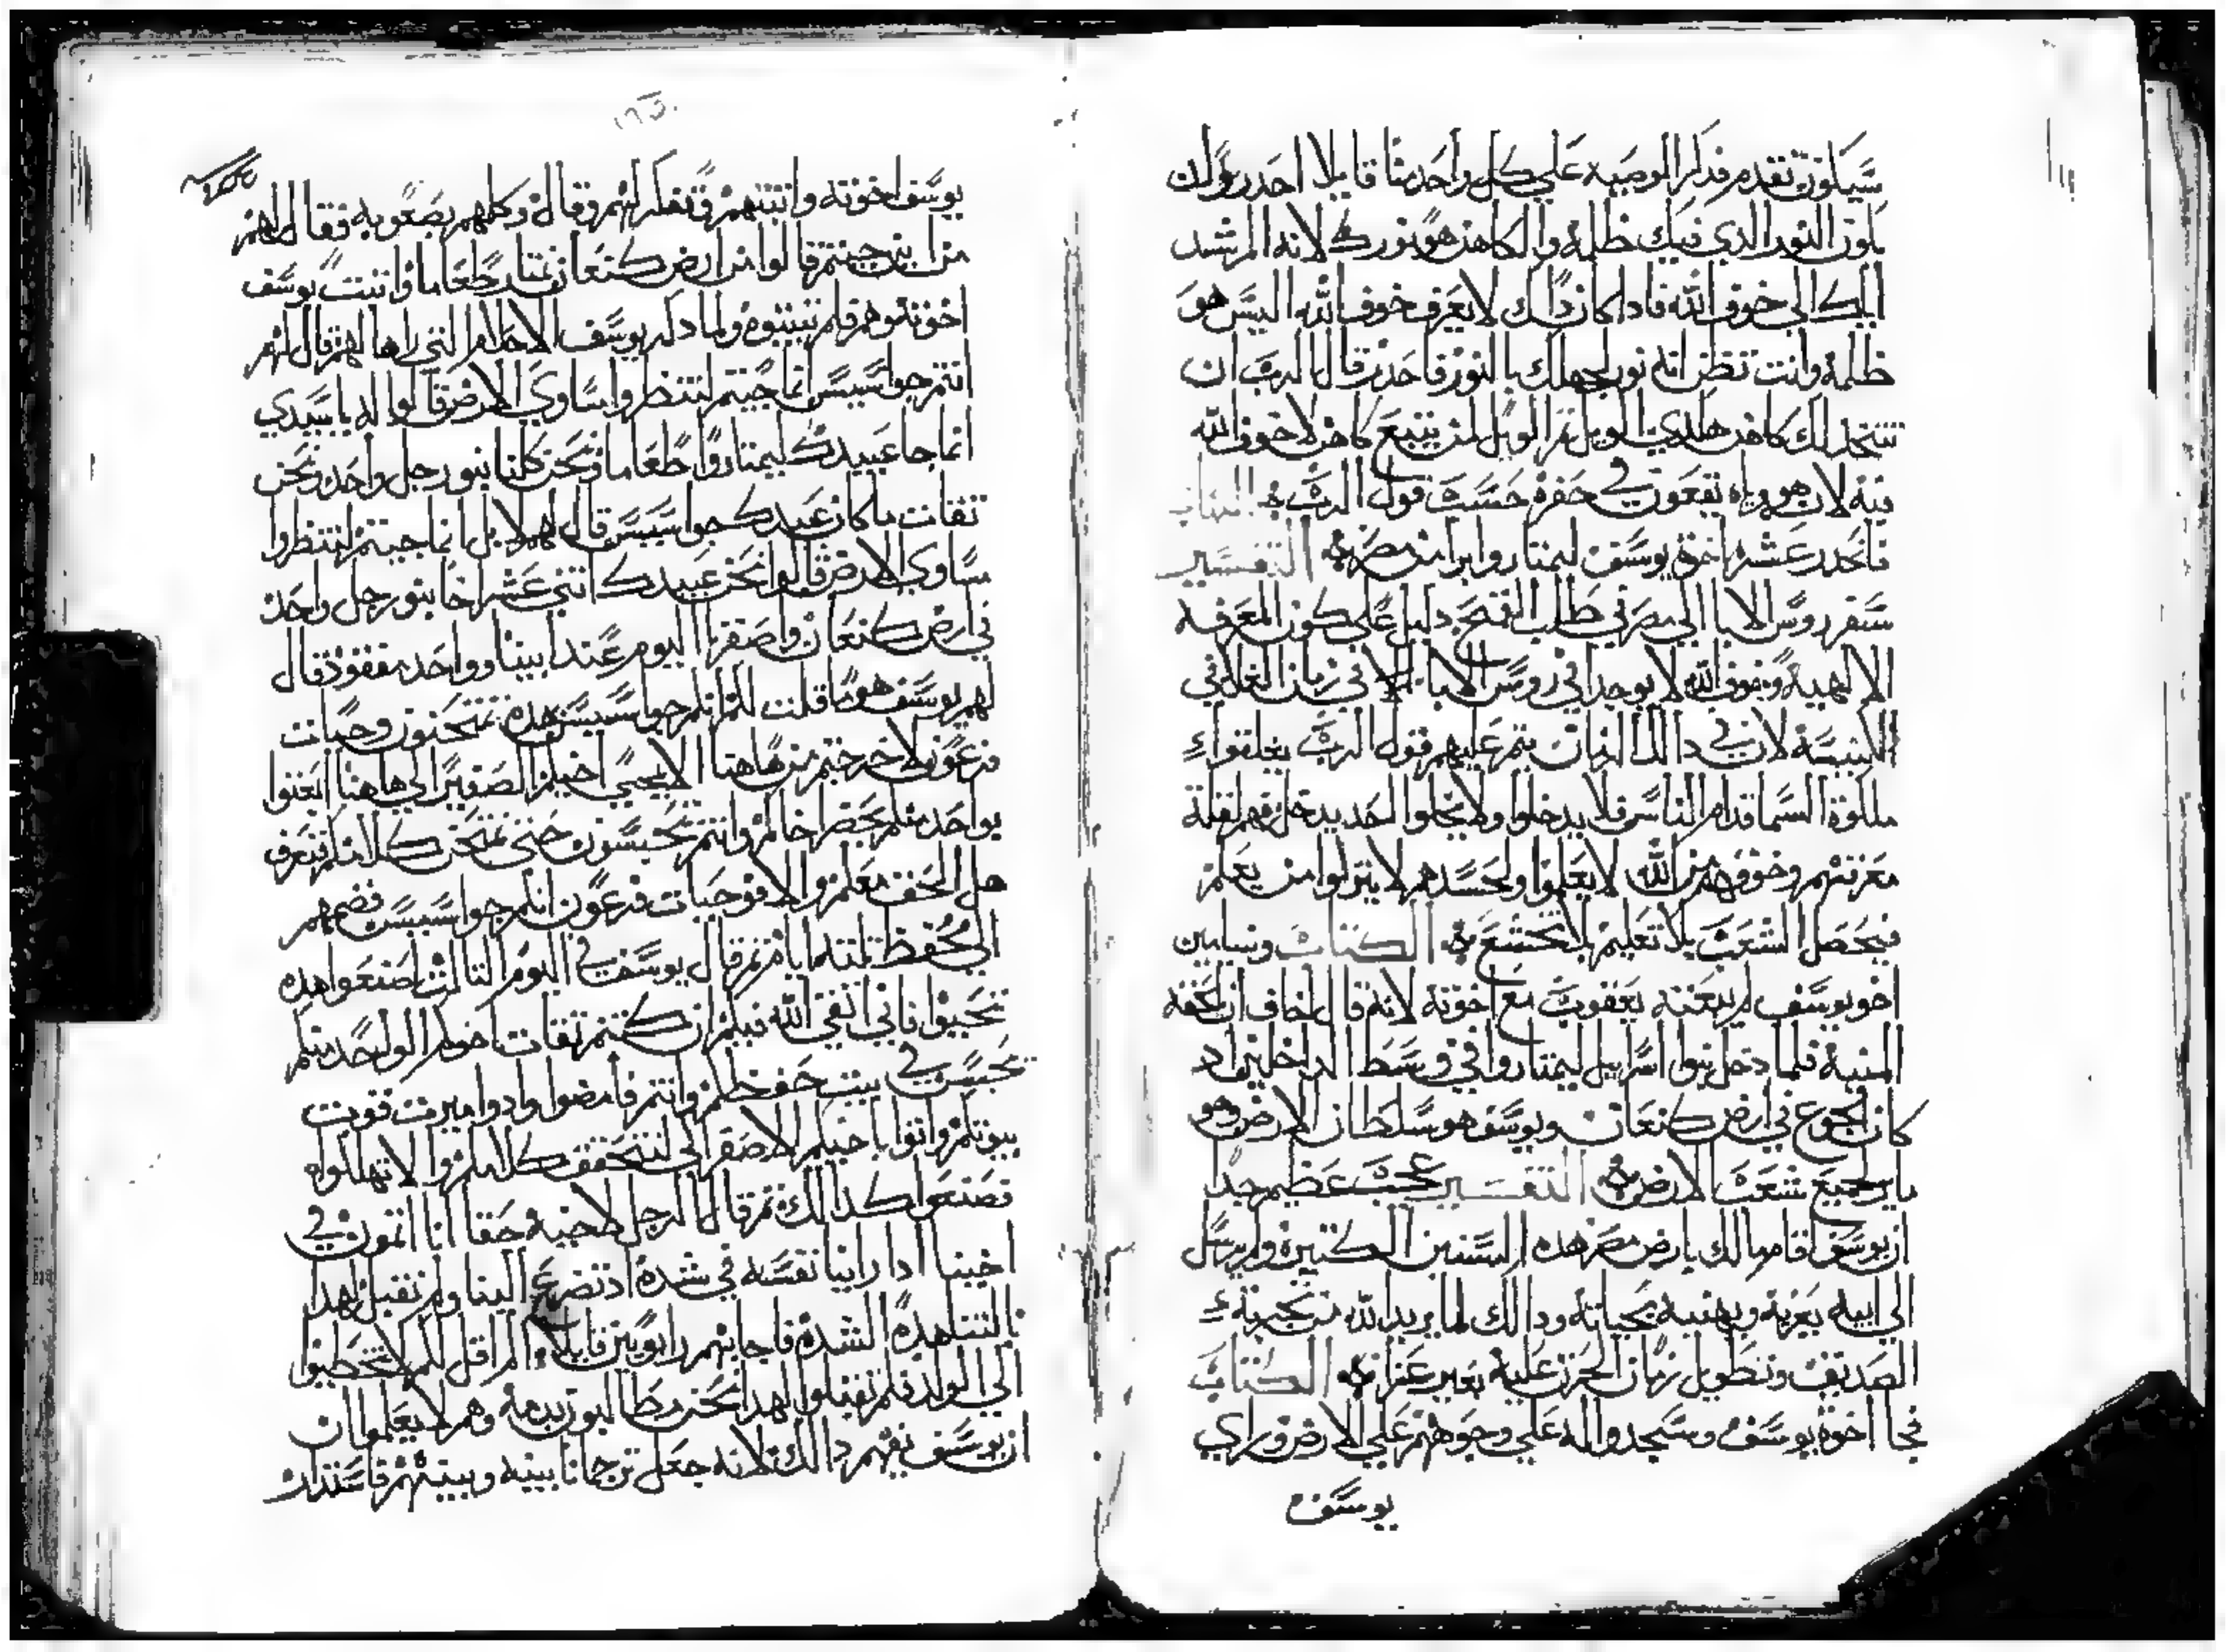 سيكون تقدم فذكر الموصيه علي كل واحد منا قايلا احدر ان
يكون النور الدي فيك ظلمه والكاهن هو نورك لانه المرشد
اليك الي خوف الله فادا كان داك لا يعرف خوف الله اليس هو
ظلمه وانت تظن انه نور لجهلك بالنور فاحدر قال الرب ان
تتخد لك كاهن هكدي الويل ثم الويل لمن يتبع كاهن لا خوف الله
فيه لان هو وياه يقعون في حفره حسب قول الرب
فانحدر عشره اخوة يوسف ليمتاروا برا من مصر التفسير
سفر روس الابا الي مصر في طلب القمح دليل علي كون المعرفه
الالهيه وخوف الله لا يوجد في روس الابا الا في زمان الغلا في
الكنيسه لان في دالك الزمان يتم عليهم قول الرب يغلقوا
ملكوة السما قدام الناس فلا يدخلوا ولا يخلوا احد يدخل فهم لقلة
معرفتهم وخوفهم من الله لا يعلموا ولحسدهم لا يتركوا من يعلم
فيحصل الشعب بلا تعليم بلا تخشع الكتاب وبنيامين
اخو يوسف لم يبعته يعقوب مع اخوته لانه قال اخاف ان تلحقه
المنيه فلما دخل بنوا اسراييل ليمتاروا في وسط الداخلين اد
كان الجوع في ارض كنعان ويوسف هو سلطان الارض وهو
يامر جميع شعب الارض التفسير عجب عظيم جدا
ان يوسف اقام مالك بارض مصر هده السنين الكتيره ولم يرسل
الي ابيه يعزيه ويهنيه بحياته ودالك لما يريد الله من تجربة
الصديق وتطويل زمان الحزن عليه بغير عزا الكتاب
فجا اخوة يوسف وسجدوا له علي وجوههم علي الارض وراي
يوسف
يوسف اخوته واتبتهم وتفكرهم وقال وكلهم بصعوبه فقال لهم
من اين جيتم قالوا من ارض كنعان نمتار طعاما واتبت يوسف
اخوته وهم فلم يتبتوه ولما دكر يوسف الاحلام التي راها لهم قال لهم
انتم جواسيس انما جيتم لتنظروا مساوي الارض قالوا له يا سيدي
انما جا عبيدك ليمتاروا طعاما ونحن كلنا بنو رجل واحد ونحن
تقات ما كان عبيدك جواسيس قال لهم لا بل انما جيتم لتنظروا
مساوي الارض قالوا نحن عبيدك اتني عشر اخا بنو رجل واحد
في ارض كنعان واصغرنا اليوم عند ابينا وواحد مفقود قال
لهم يوسف هو ما قلت لكم انكم جواسيس بهده تمتحنون وحيات
فرعون لا خرجتم من هاهنا الا يجي اخيكم الصغير الي هاهنا ابعتوا
بواحد منكم يحضر اخاكم وانتم تحبسون حتي نمتحن كلامكم فنعرف
هل الحق معكم والا فوحيات فرعون انكم جواسيس فضمهم
الي محفظ تلتة ايام تم قال يوسف في اليوم التالت اصنعوا هده
تحيوا فاني اتقي الله فيكم ان كنتم تقات اخوكم الواحد منكم
يحبس في بيت حفظكم وانتم فامضوا وادوا ميرت قوت
بيوتكم واتوا باخيكم الاصغر الي لنتحقق كلامكم والا تهلكوا
فصنعوا كدالك تم قال الرجل لاخيه حقا اننا اتمون في
اخينا ادا راينا نفسه في شده اد تضرع الينا ولم نقبل لهدا
نالتنا هده الشده فاجابهم راوبين قايلا الم اقل لكم لا تخطيوا
الي الولد فلم تقبلوا لهدا نحن مطالبون بدمه وهم لا يعلموا ان
ان يوسف يفهم دالك لانه جعل ترجمانا بينه وبينهم فاستدار